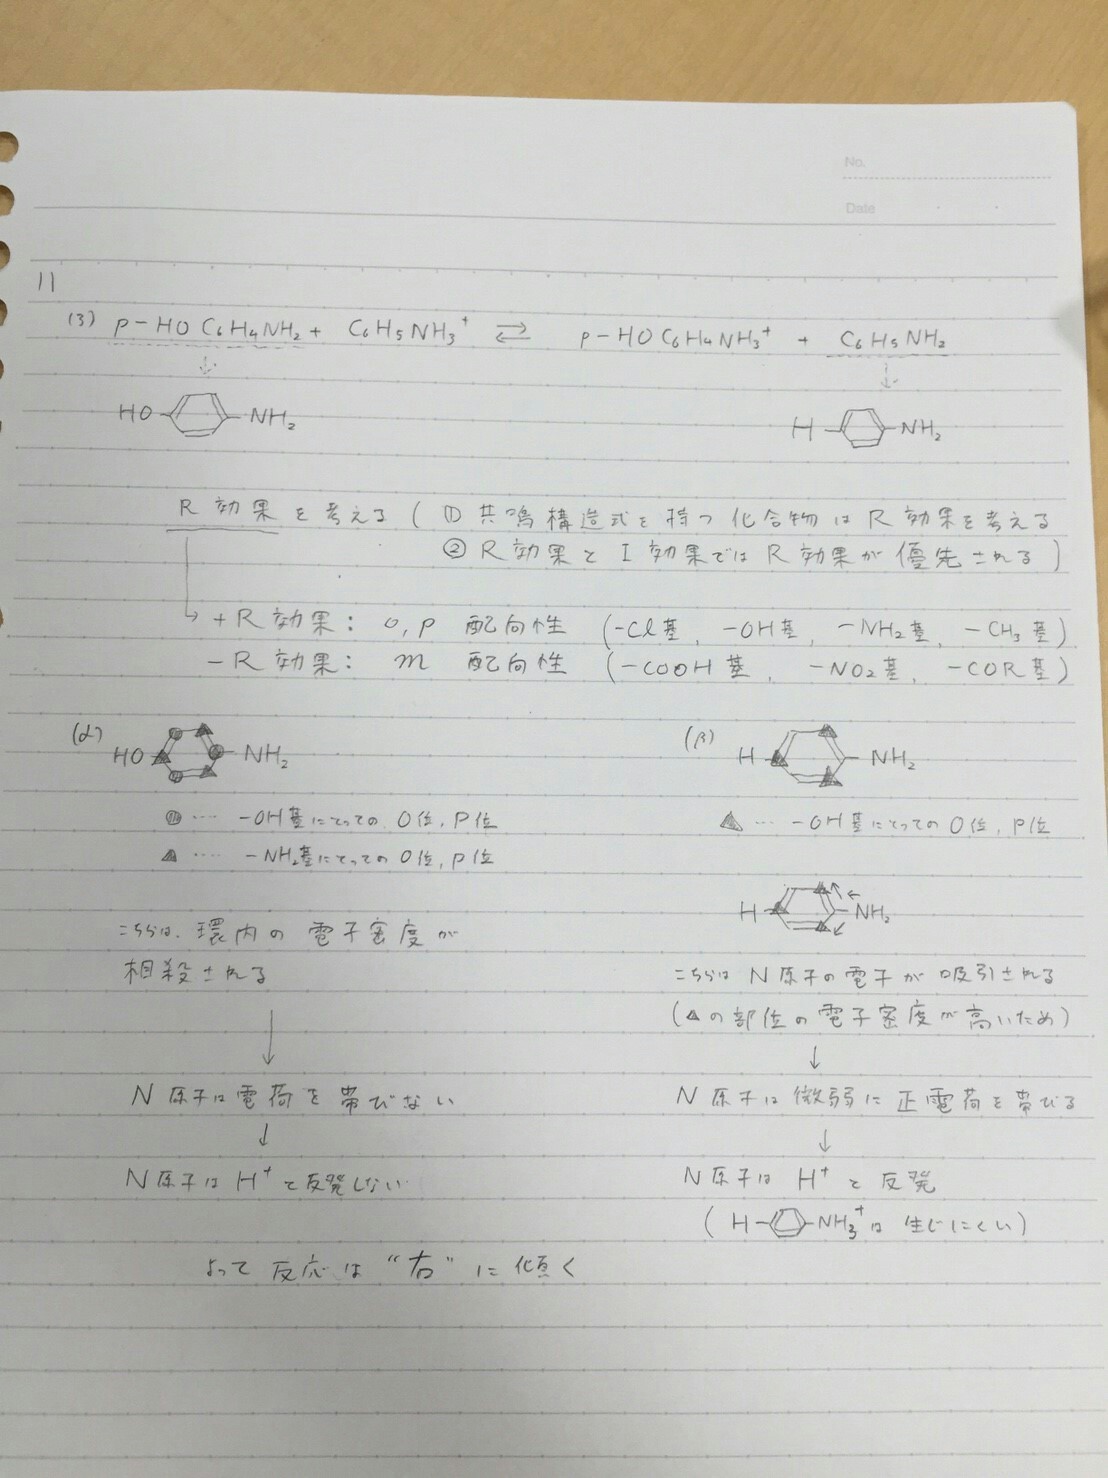 No.
Date
11
(3) p-HOC6H4NH2 + C6H5NH3+ ⇄ p-HOC6H4NH3+ + C6H5NH2
HO NH2 H NH2
R効果を考える(①共鳴構造式を持つ化合物はR効果を考える
②R効果とI効果ではR効果が優先される)
+R効果: o,p 配向性 (-Cl基、-OH基、-NH2基、-CH3基)
-R効果: m 配向性 (-COOH基、-NO2基、-COR基)
(α) HO NH2
● … -OH基にとってのO位,P位
▲ … -NH2基にとってのO位,P位
こちらは、環内の電子密度が
相殺される
↓
N原子は電荷を帯びない
↓
N原子はH+と反発しない
(β) H NH2
▲ … -OH基にとってのO位,P位
H NH2
こちらはN原子の電子が吸引される
(▲の部位の電子密度が高いため)
↓
N原子は微弱に正電荷を帯びる
↓
N原子はH+と反発
(H NH3+は生じにくい)
よって反応は“右”に傾く